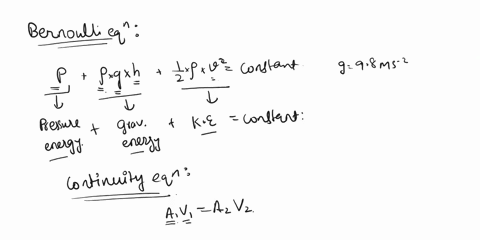 Bernoulli eqⁿ:
P + ρ×g×h + 1/2×ρ×v² = constant g=9.8 ms⁻²
Pressure energy + grav. energy + K.E = constant:
Continuity eqⁿ:
A₁V₁ = A₂V₂